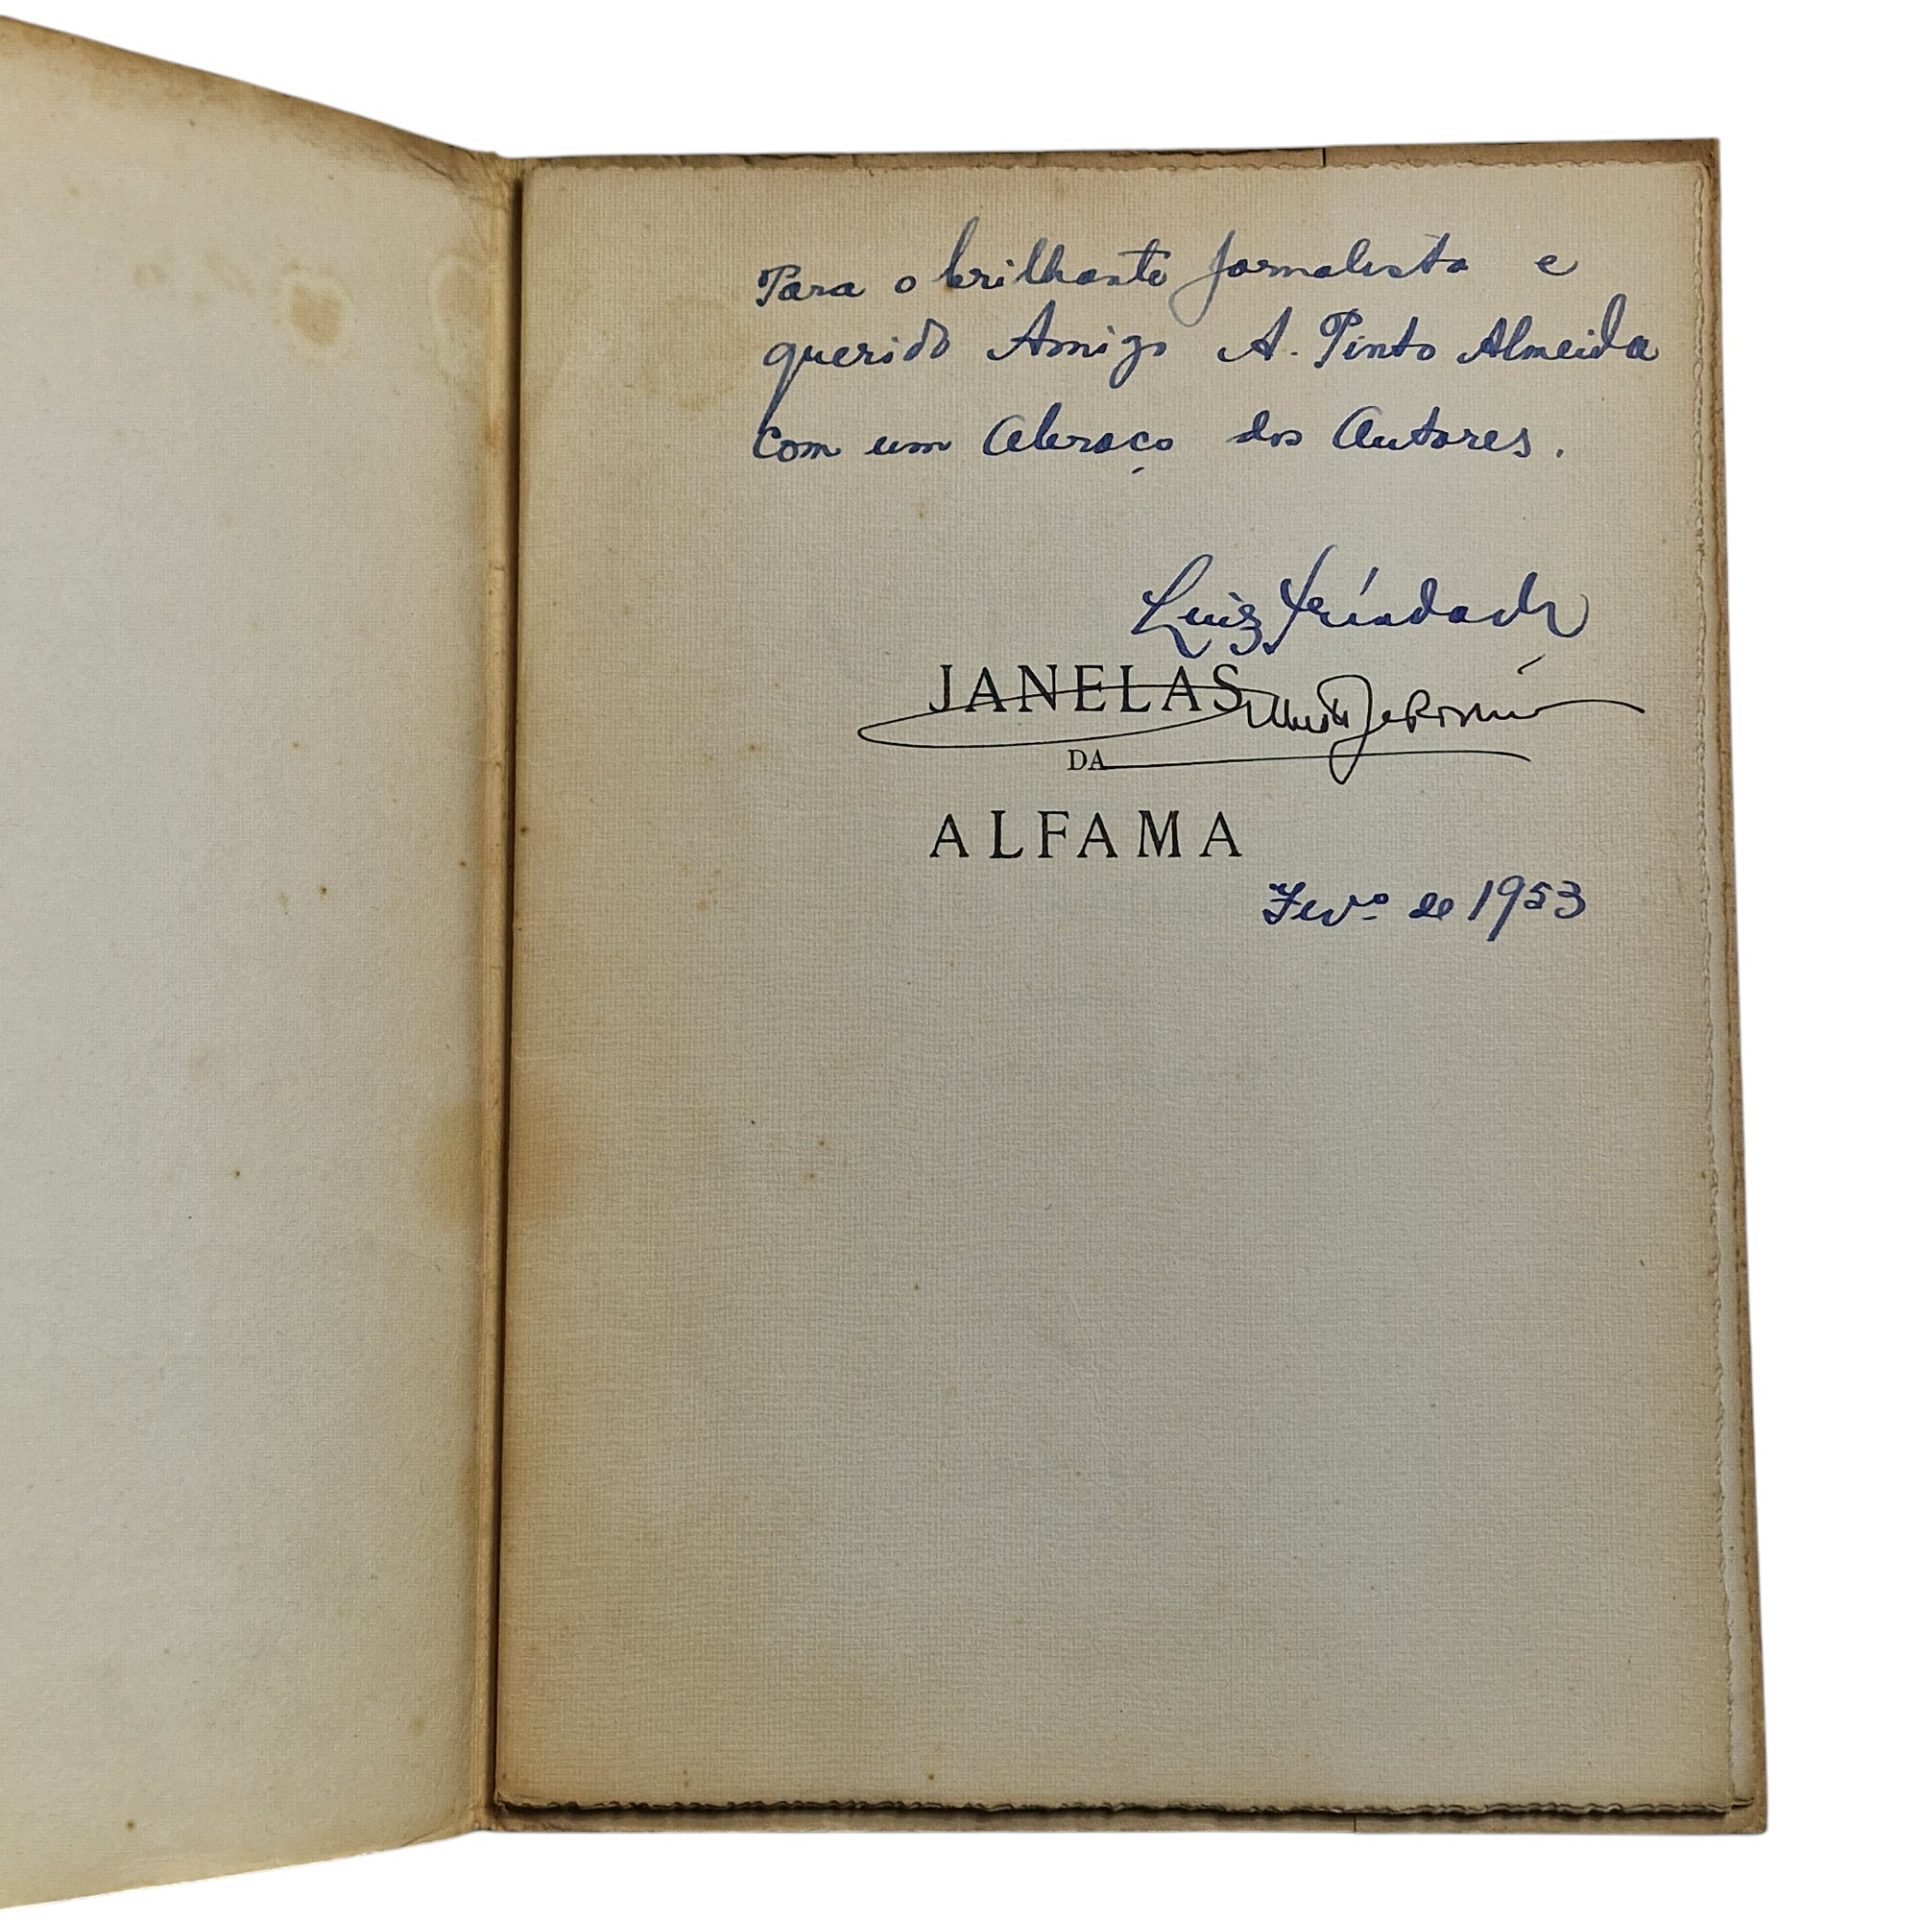 Para o brilhante Jornalista e
querido Amigo A. Pinto Almeida
com um Abraço dos Autores.
Luiz Trindade
JANELAS
DA
ALFAMA
Fevº de 1953